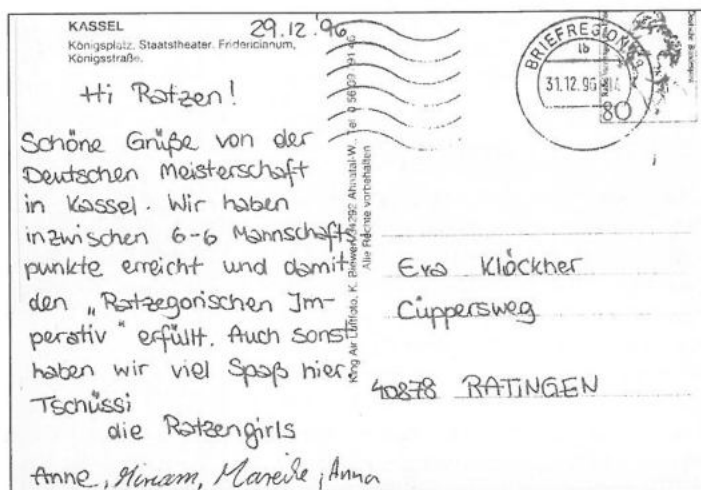 KASSEL
Königsplatz, Staatstheater, Fridericianum,
Königsstraße.
29.12.'96
Hi Ratzen!
Schöne Grüße von der
Deutschen Meisterschaft
in Kassel. Wir haben
inzwischen 6-6 Mannschafts-
punkte erreicht und damit
den „Ratzegorischen Im-
perativ" erfüllt. Auch sonst
haben wir viel Spaß hier.
Tschüssi
die Ratzengirls
Anne, Miriam, Mareike, Anna
King Air Luftfoto, K. 34292 Ahnatal-W., Tel.
Alle Rechte vorbehalten
BRIEFREGION
31.12.96
80
Eva Klöckner
Cüppersweg
40878 RATINGEN